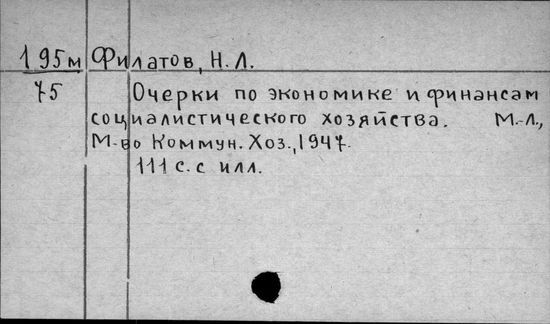 195м Филатов, Н. Л.
75 Очерки по экономике и финансам
социалистического хозяйства. М.-Л.,
М-во Коммун. Хоз., 1947.
111 с. с илл.